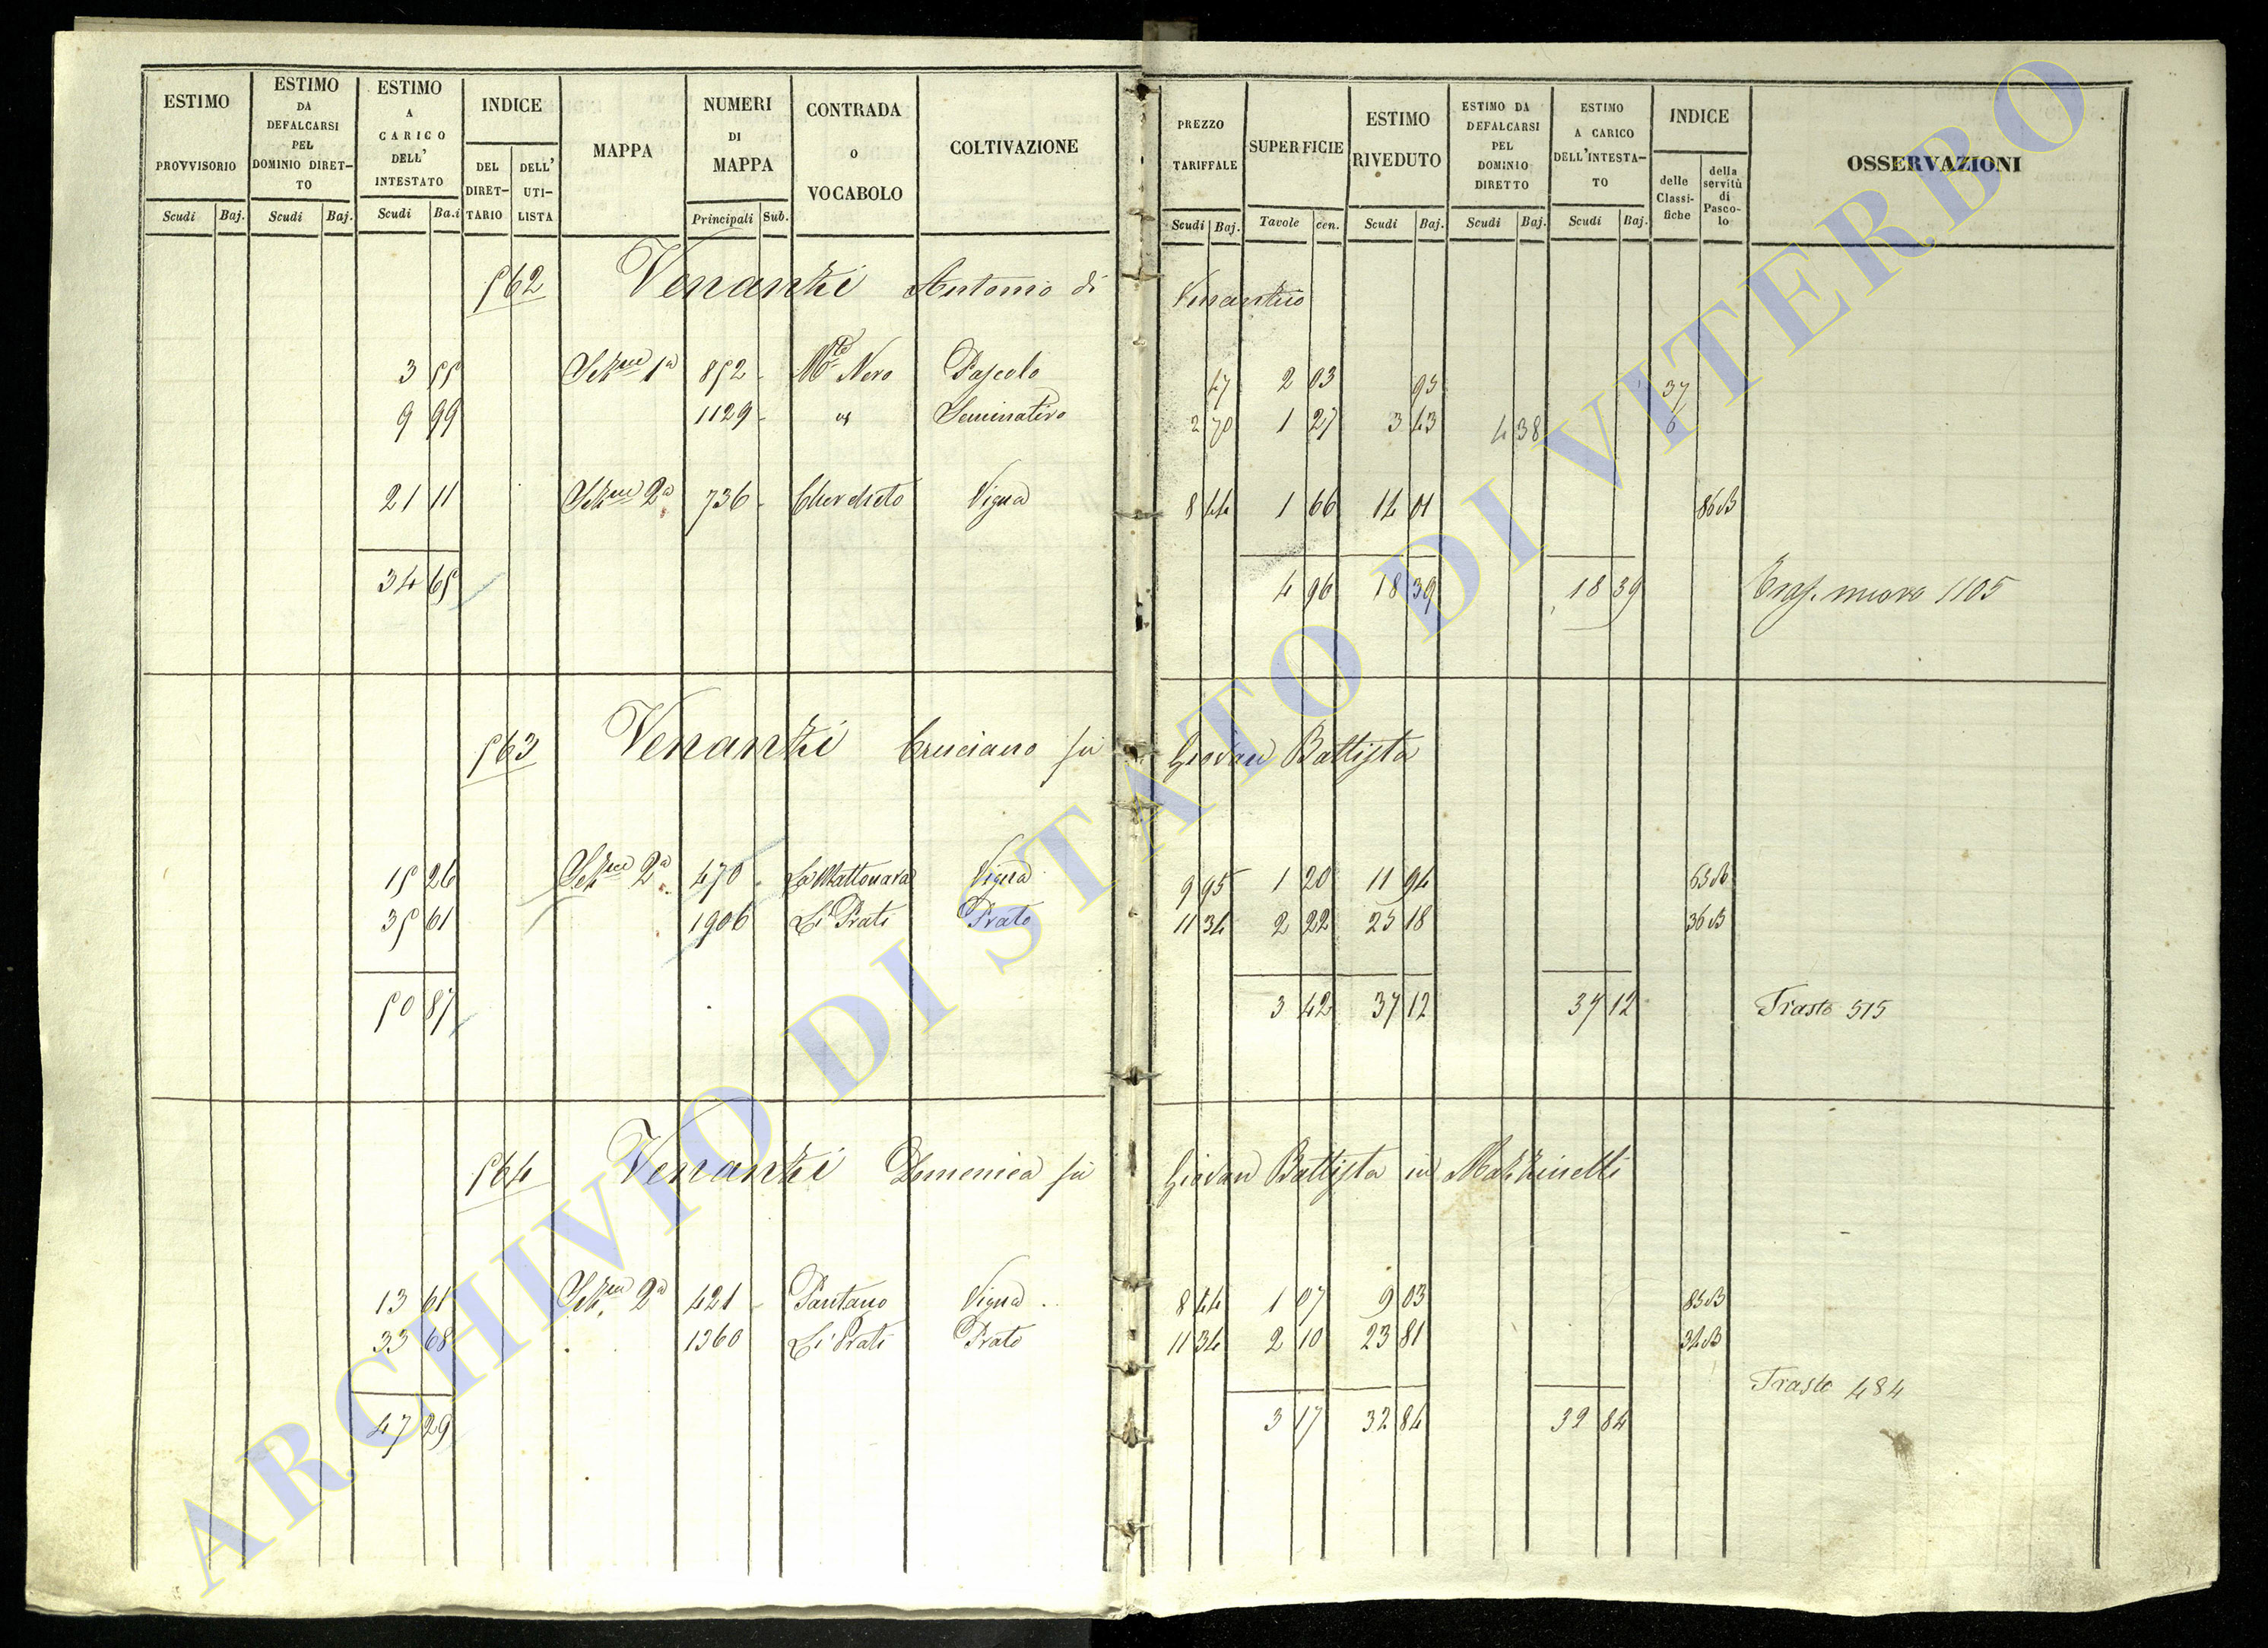 ESTIMO PROVVISORIO
ESTIMO DA DEFALCARSI PEL DOMINIO DIRET-TO
ESTIMO A CARICO DELL' INTESTATO
INDICE
DEL DIRET-TARIO
DELL' UTI-LISTA
MAPPA
NUMERI DI MAPPA
CONTRADA O VOCABOLO
COLTIVAZIONE
PREZZO TARIFFALE
SUPERFICIE
ESTIMO RIVEDUTO
ESTIMO DA DEFALCARSI PEL DOMINIO DIRETTO
ESTIMO A CARICO DELL'INTESTA-TO
INDICE
delle Classi-fiche
della servitù di Pasco-lo
OSSERVAZIONI
Scudi Baj. Scudi Baj. Scudi Ba.i Principali Sub. Scudi Baj. Tavole cen. Scudi Baj. Scudi Baj. Scudi Baj.
562 Venanzi Antonio di Venanzio
3 55 Sezne 1a 852 Mte Nero Pascolo 47 2 03 95 37
9 99 1129 Seminativo 2 70 1 27 3 43 4 38 6
21 11 Sezne 2a 736 Chercheto Vigna 8 44 1 66 14 01 86 B
34 65 4 96 18 39 18 39 nuovo 1105
563 Venanzi Cruciano fu Giovan Battista
15 26 Sezne 2a 470 La Mattonara Vigna 9 95 1 20 11 94 63 B
35 61 1906 Li Prati Prato 11 34 2 22 25 18 36 B
50 87 3 42 37 12 37 12 Trasto 515
564 Venanzi Domenica fu Giovan Battista in Mazzinelli
13 61 Sezne 2a 421 Pantano Vigna 8 44 1 07 9 03 85 B
33 68 1360 Li Prati Prato 11 34 2 10 23 81 34 B
47 29 3 17 32 84 32 84 Trasto 484
ARCHIVIO DI STATO DI VITERBO